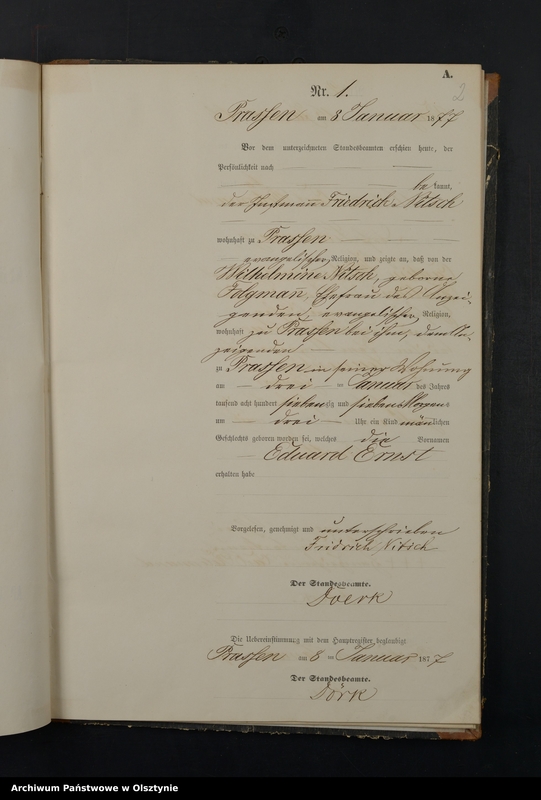 A.
2
Nr. 1.
Prassen am 8 Januar 1877
Vor dem unterzeichneten Standesbeamten erschien heute, der
Persönlichkeit nach
bekannt,
der Instmann Friedrich Nitsch
wohnhaft zu Prassen
evangelischer Religion, und zeigte an, daß von der
Wilhelmine Nitsch, geborne
Folgmann, Ehefrau des Anzei-
genden, evangelischer Religion,
wohnhaft zu Prassen bei ihm, dem An-
zeigenden
zu Prassen in seiner Wohnung
am drei ten Januar des Jahres
tausend acht hundert siebenzig und sieben Morgens
um drei Uhr ein Kind männlichen
Geschlechts geboren worden sei, welches die Vornamen
Eduard Ernst
erhalten habe
Vorgelesen, genehmigt und unterschrieben
Fridrich Nitsch
Der Standesbeamte.
Doerk
Die Uebereinstimmung mit dem Hauptregister beglaubigt
Prassen am 8 ten Januar 1877
Der Standesbeamte.
Dörk
Archiwum Państwowe w Olsztynie